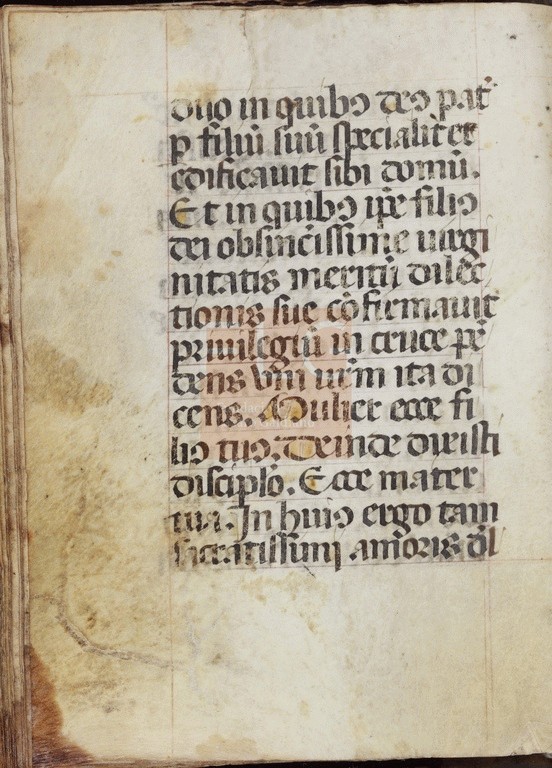 duo in quibꝯ deꝯ pat᷑
ꝑ filiū suū specialit᷑ et
edificavit sibi domū.
Et in quibꝯ ip̄e filiꝯ
dei obsinc̄issime virgi
nitatis meritū dilec
tionis sue cōfirmavit
privilegiū in cruce pē
dens vni vr̄m ita di
cens. Mulier ecce fi
liꝯ tuꝯ. Deinde dixisti
discipl̄o. Ecce mater
tua. In huiꝯ ergo tam
sacratissimi amoris dl̄